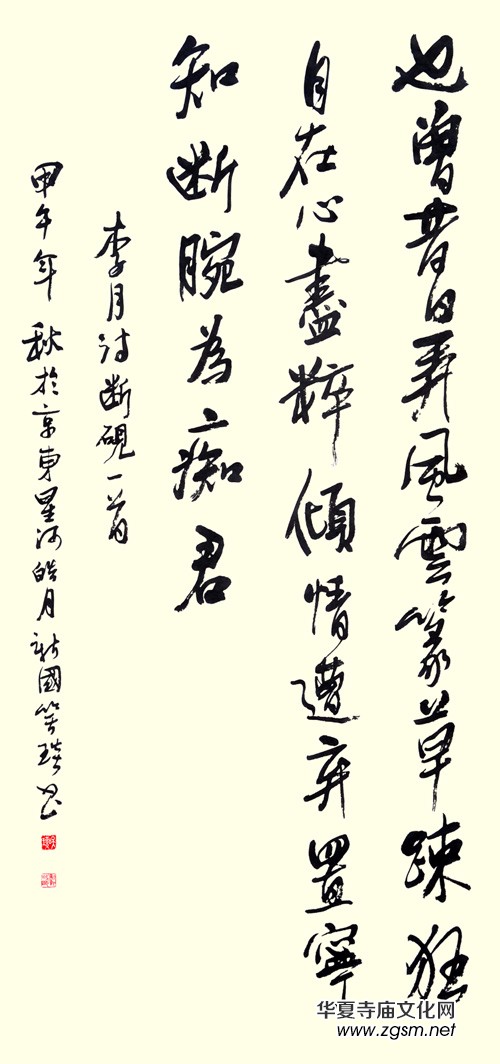 也曾昔日弄風雲篆草踈狂
自在心盡粹傾情遭弃置寧
知断腕为痴君
李月诗断硯一首
甲午年秋於京東星河皓月新國笑琰书
华夏寺庙文化网
www.zgsm.net